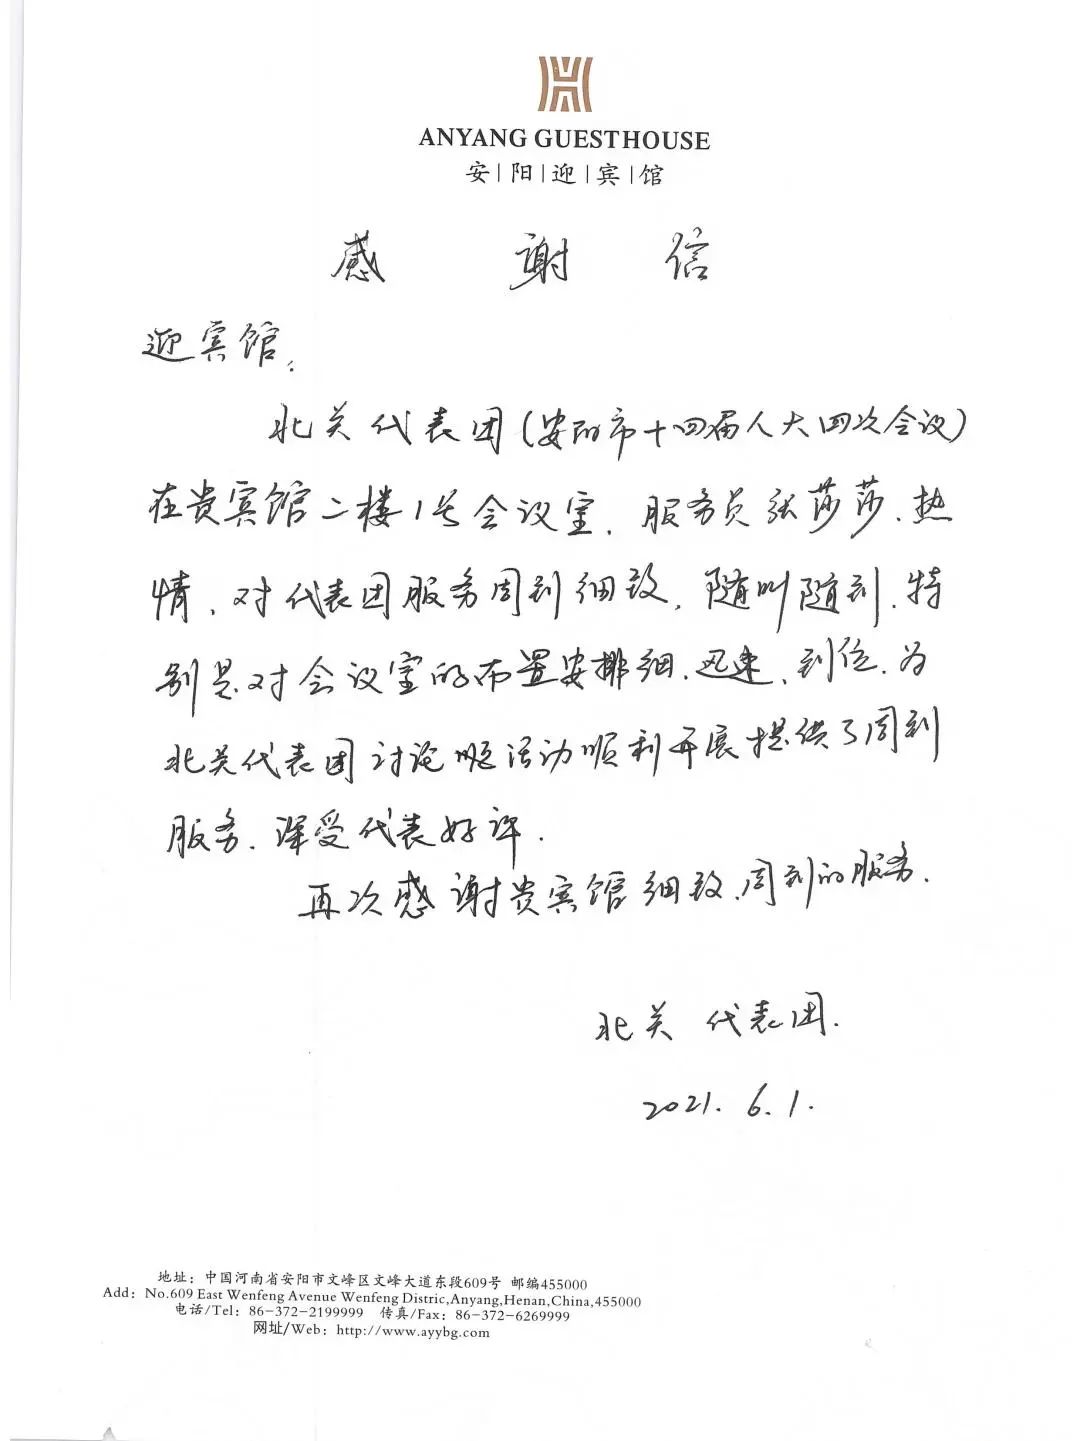 ANYANG GUESTHOUSE
安|阳|迎|宾|馆
感 谢 信
迎宾馆.
北关代表团(安阳市十四届人大四次会议)
在贵宾馆二楼1号会议室.服务员张莎莎.热
情.对代表团服务周到细致.随叫随到.特
别是对会议室的布置安排细.迅速.到位.为
北关代表团讨论 活动顺利开展提供了周到
服务.深受代表好评.
再次感谢贵宾馆细致.周到的服务.
北关 代表团.
2021. 6. 1.
地址：中国河南省安阳市文峰区文峰大道东段609号 邮编455000
Add：No.609 East Wenfeng Avenue Wenfeng Distric,Anyang,Henan,China,455000
电话/Tel：86-372-2199999 传真/Fax：86-372-6269999
网址/Web：http://www.ayybg.com